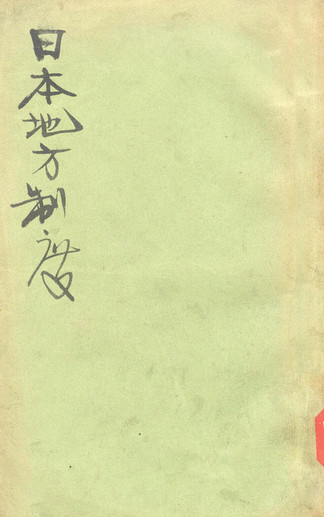 日本地方制度